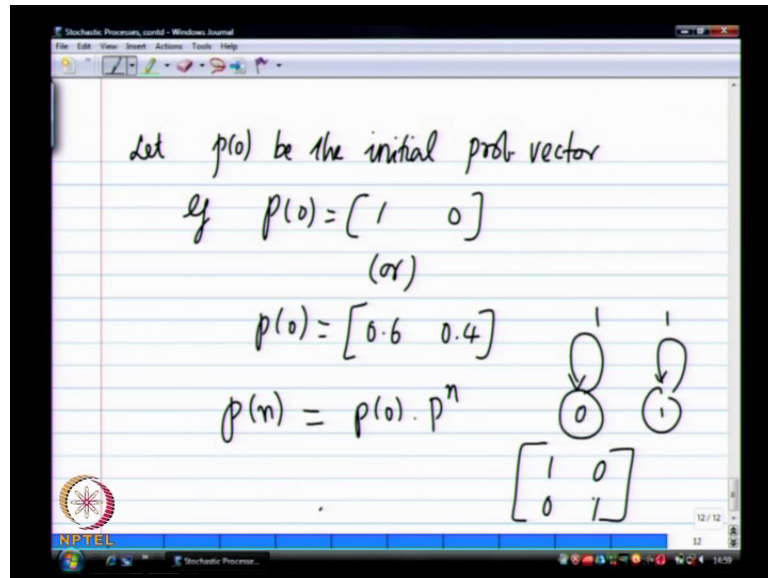 Stochastic Processes, contd - Windows Journal
File Edit View Insert Actions Tools Help
Let p(0) be the initial prob vector
If p(0) = [ 1 0 ]
(or)
p(0) = [ 0.6 0.4 ]
1 1
p(n) = p(0) . P^n
0 1
[ 1 0
0 1 ]
12 / 12
12
NPTEL
Stochastic Processe...
14:59